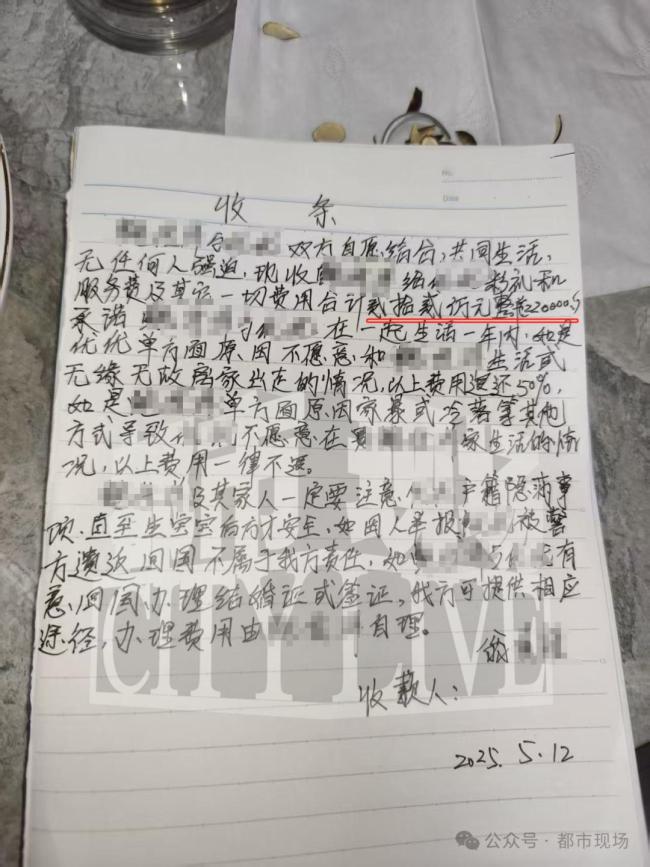 No.
Date
收 条
双方自愿结合,共同生活,
无任何人强迫,现收 给 彩礼和
服务费及其它一切费用合计贰拾贰万元整￥220000
承诺 与 在一起生活一年内,如是
单方面原因不愿意和 生活或
无缘无故离家出走的情况,以上费用退还50%,
如是 单方面原因家暴或冷落等其他
方式导致 不愿意在 家生活的情
况,以上费用一律不退。
及其家人一定要注意 户籍隐瞒事
项,直至生宝宝后方才安全,如因人举报 被警
方遣返回国不属于我方责任,如 与 有
意回国办理结婚证或签证,我方可提供相应
途径,办理费用由 自理。
收款人:
2025. 5. 12
CITY LIVE
公众号·都市现场